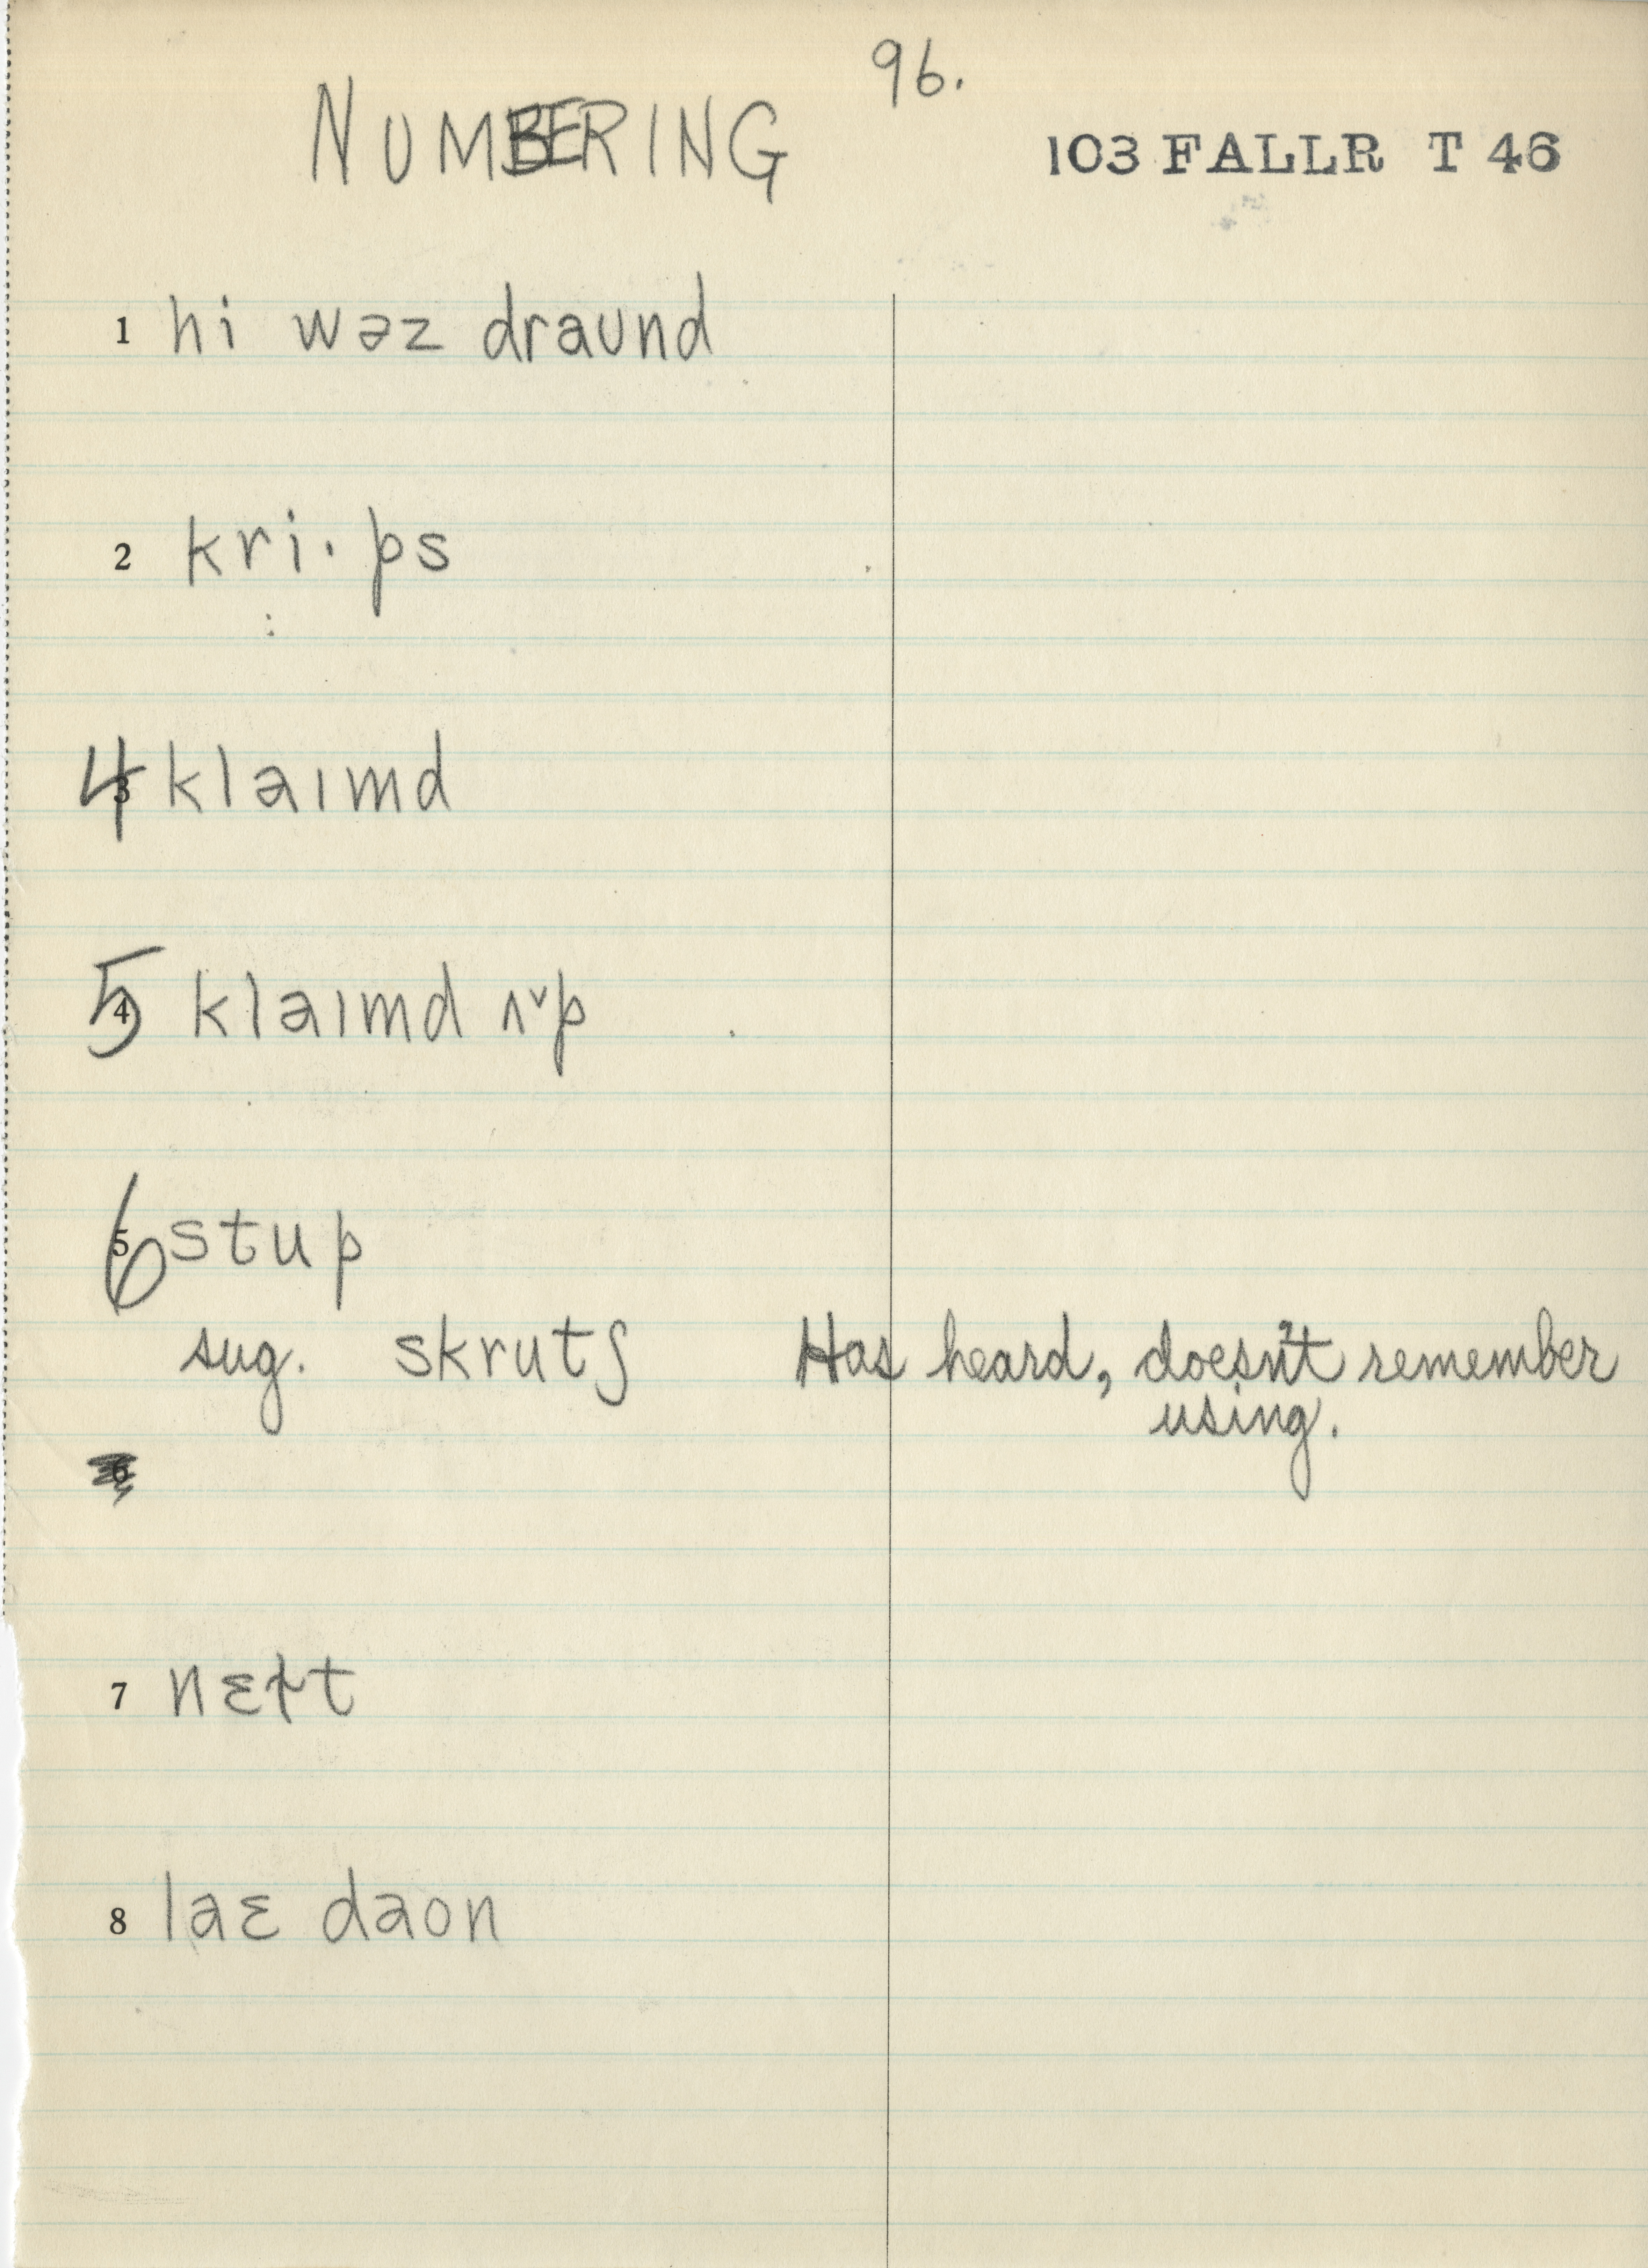 96.
NUMBERING
103 FALLR T 46
1 hi wəz draund
2 kri·ps
4 klaımd
5 klaımd ʌ˅p
6 stup
sug. skrutʃ Has heard, doesn't remember
using.
7 nɛɫt
8 laɛ daon